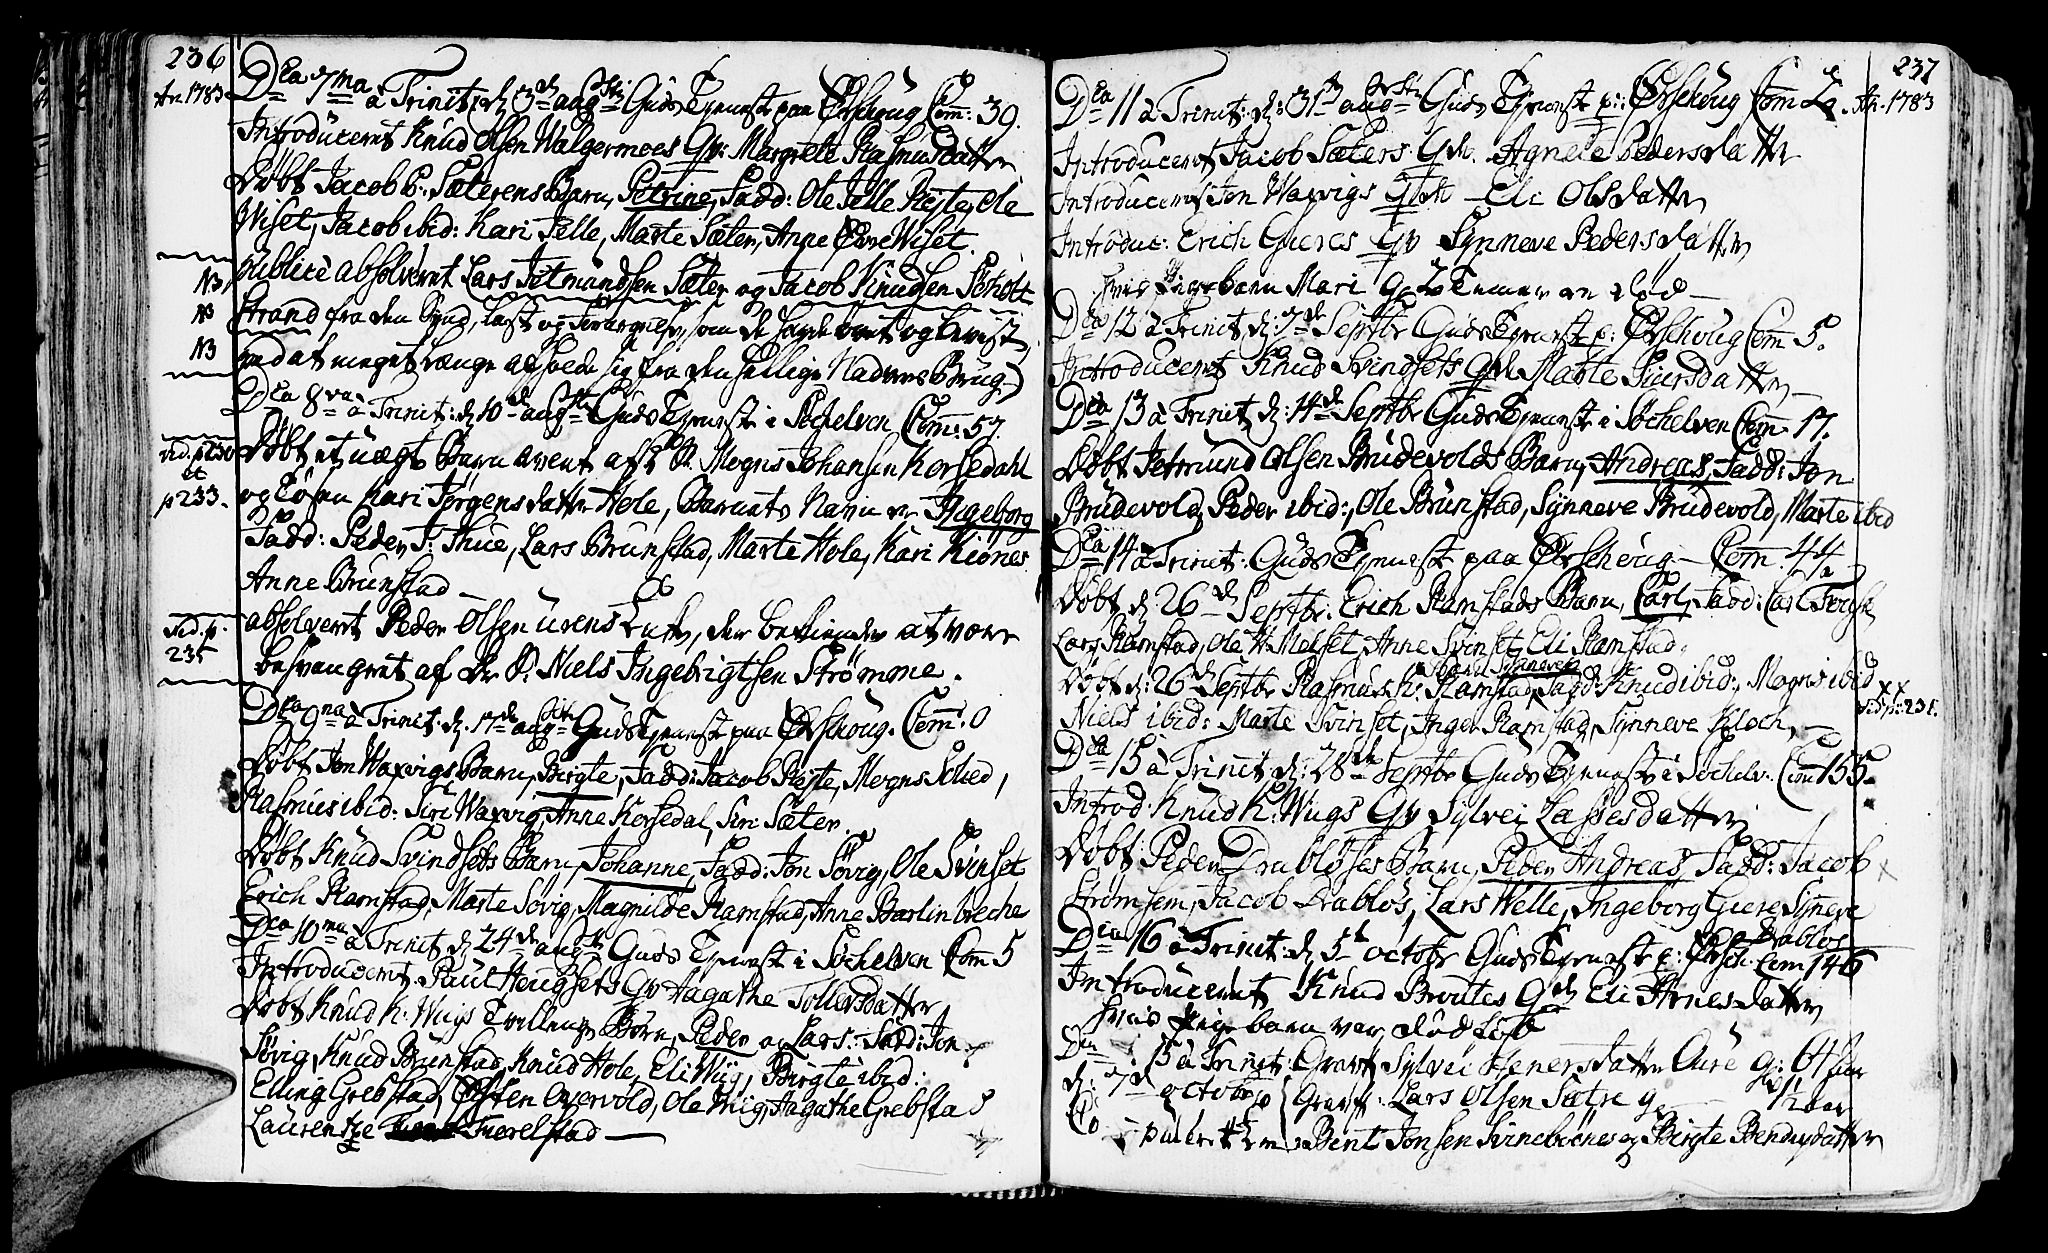 236
An. 1783
Dca 7ma à Trinit: d. 3de augsti Guds Tjeneste paa Ørschoug Com: 39.
Introduceret Knud Olsen Walgermoes Qv: Margrete Rasmusdatter
Døbt Jacob P: Sæterens Barn, Petrine, Fadd: Ole Jelle Rejte, Ole
Wiset, Jacob ibid: Kari Jelle, Marte Sæter, Anne Øvre Wiset.
publicè absolveret Lars Jetmundsen Sæter og Jacob Knudsen Scholt
NB
strand fra den Synd, last og forargelse, som de havde
NB
ved at meget længe afholde sig fra den hellige Nadveres Brug
NB
Dca 8va à Trinit: d. 10de augsti Guds Tjeneste i Söchelven Com: 57.
vid. p 230
et
p 233.
Døbt et uægte Barn avlet af S. P. Mogns Johansen Korsedahl
og Løsqv: Kari Jørgensdatter Hole, Barnets Navn er Ingeborg
Fadd: Peder J: Thue, Lars Brunstad, Marte Hole, Kari Kiønes
Anne Brunstad
vid. p.
235
absolveret Peder Olsen Urens Enke, der bekiender at være
besvangret af S. P. Niels Ingebrigtsen Strømme.
Dca 9na à Trinit: d. 17de augsti Guds Tjeneste paa Ørschoug. Com: 0
Døbt Jon Waxvigs Barn, Birgte, Fadd: Jacob Rejte, Mogns Sched,
Rasmus ibid: Siri Waxvig, Anne Korsedal, Siri Sæter.
Døbt Knud Svindsets Barn, Johanne, Fadd: Jon Søvig, Ole Svinset
Erich Ramstad, Marte Søvig, Magnilde Ramstad, Anne Barlinbreche
Dca 10ma à Trinit d. 24de augsti Guds Tjeneste i Söchelven Com 5
Introduceret Paul Hougsets Qv Hagathe Tollevsdatter
Døbt Knud K: Wiigs Tvillinge Børn, Peder og Lars: Fadd: Jon
Søvig, Knud Brunstad, Knud Hole, Eli Wiig, Birgte ibid:
Elling Grebstad, Østen Overvold, Ole Wiig, Hagathe Grebstad
Laurentze Tverelstad

237
An. 1783
Dca 11 à Trinit: d: 31te augsti Guds Tjeneste p: Ørschoug Com
Introduceret Jacob Sæters Qv. Agnete Pedersdatter
Introduceret Jon Waxvigs Qv Eli Olsdatter
Introduc: Erich Gueres Qv Synneve Pedersdatter
hvis Pigebarn Mari er død
Dca 12 à Trinit d: 7de Septbr Guds Tjeneste p: Ørschoug Com 5.
Introduceret Knud Svindsets Qv Marte Siversdatter
Dca 13 à Trinit d: 14de Septbr Guds Tjeneste i Söchelven Com. 17.
Døbt Jetmund Olsen Brudevolds Barn, Andreas, Fadd: Jon
Brudevold, Peder ibid:, Ole Brunstad, Synneve Brudevold, Marte ibid
Dca 14 à Trinit: Guds Tjeneste paa Ørschoug Com 44
Døbt d: 26de Septbr: Erich Ramstads Barn, Carl, Fadd: Carl
Lars Ramstad, Ole W. Melset, Anne Svinset, Eli Ramstad,
Døbt d: 26de Septbr Rasmus K: Ramstad Barn Synneve Fadd: Knud ibid:, Mogns ibid
vid p. 231.
Niels ibid: Marte Svinset, Inger Ramstad, Synneve Kloch,
Dca 15 à Trinit d: 28de Septbr Guds Tjeneste i Söchelv. Com 155.
Introd: Knud K: Wiigs Qv Sylvei Lassesdatter
Døbt Peder Drabløses Barn, Peder Andreas, Fadd: Jacob
Strømsem, Jacob Drabløs, Lars Welle, Ingeborg Guere, Synneve
Drabløs
Dca 16 à Trinit: d. 5te octobr Guds Tjeneste p: Ørsch. Com 146
Introduceret Knud Broutes Qv Eli Arnesdatter
hvis Pigebarn var dødføb
15 à Trinit: Gravf Sylvei datter Aure g: 64 aar
d: 7de octobr Gravf: Lars Olsen Sætre g
Bent Jonsen Svinebones og Birgte Bendixdatter